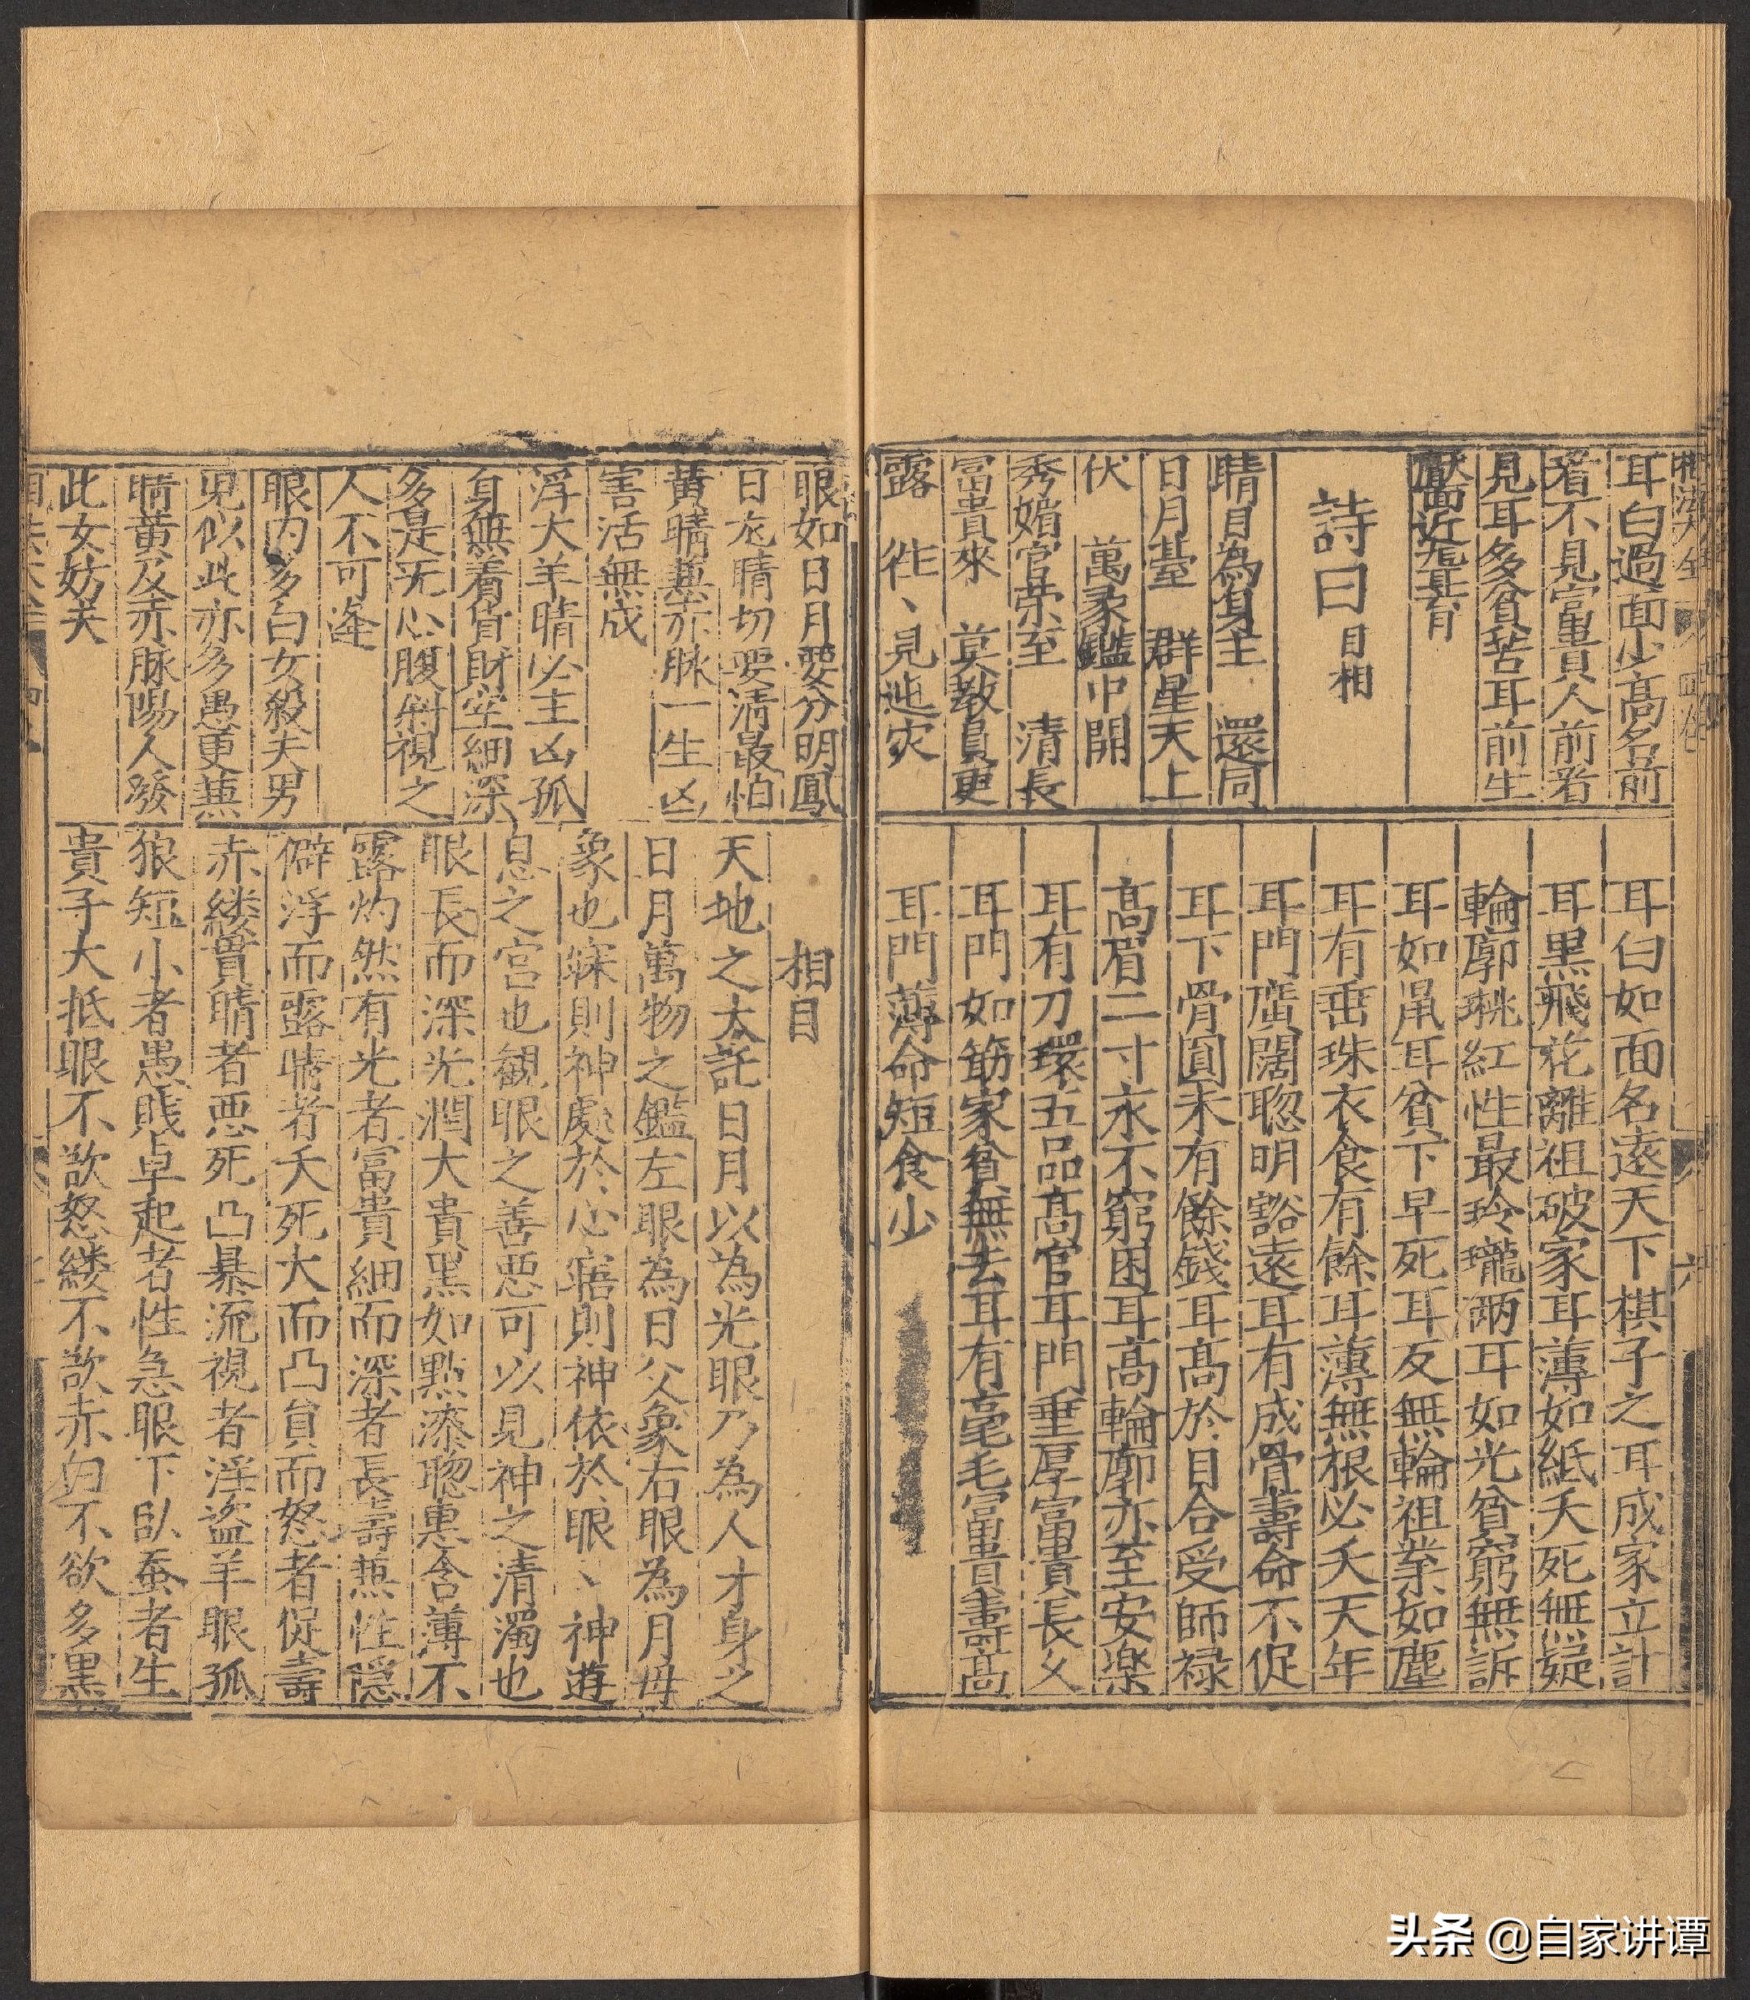 耳白過面小高名前
看不見富貴人前看
見耳多貧苦耳前生
靨面近聾盲
詩曰 目相
睛目為身主 還同
日月臺 群星天上
伏 萬象鑑中開
秀媚官榮至 清長
富貴來 莫教貟更
露 徃、見迍灾
耳白如面名逺天下棋子之耳成家立計
耳黒飛花離祖破家耳薄如紙夭死無疑
輪廓珧紅性最玲瓏兩耳如光貧窮無訴
耳如鼠耳貧下早死耳反無輪祖業如塵
耳有垂珠衣食有餘耳薄無根必夭天年
耳門廣闊聦明豁逺耳有成骨壽命不促
耳下骨圓末有餘錢耳髙於目合受師禄
髙眉二寸永不窮困耳髙輪廓亦至安楽
耳有刀環五品髙官耳門垂厚富貴長久
耳門如筋家貧無去耳有毫毛富貴壽髙
耳門薄命短食少
眼如日月要分明鳳
目龙睛切要清最怕
黄睛蕪赤脉一生凶
害活無成
浮大羊睛必主凶孤
身無着貨財空細深
多是无心腹斜視之
人不可逢
眼内多白女殺夫男
児似此亦多愚更蕪
睛黄及赤脉陽人發
此女妨夫
相目
天地之太託日月以為光眼乃為人才身之
日月萬物之鑑左眼為日父象右眼為月母
象也寐則神處於心寤則神依於眼、神遊
息之宫也観眼之善悪可以見神之清濁也
眼長而深光潤大貴黒如點漆聦惠含薄不
露灼然有光者富貴細而深者長壽蕪性隠
僻浮而露睛者夭死大而凸貟而怒者促壽
赤縷貫睛者悪死凸暴流視者淫盗羊眼孤
狼短小者愚賎卓起者性急眼下臥蚕者生
貴子大抵眼不欲怒縷不欲赤白不欲多黒
头条 @自家讲谭